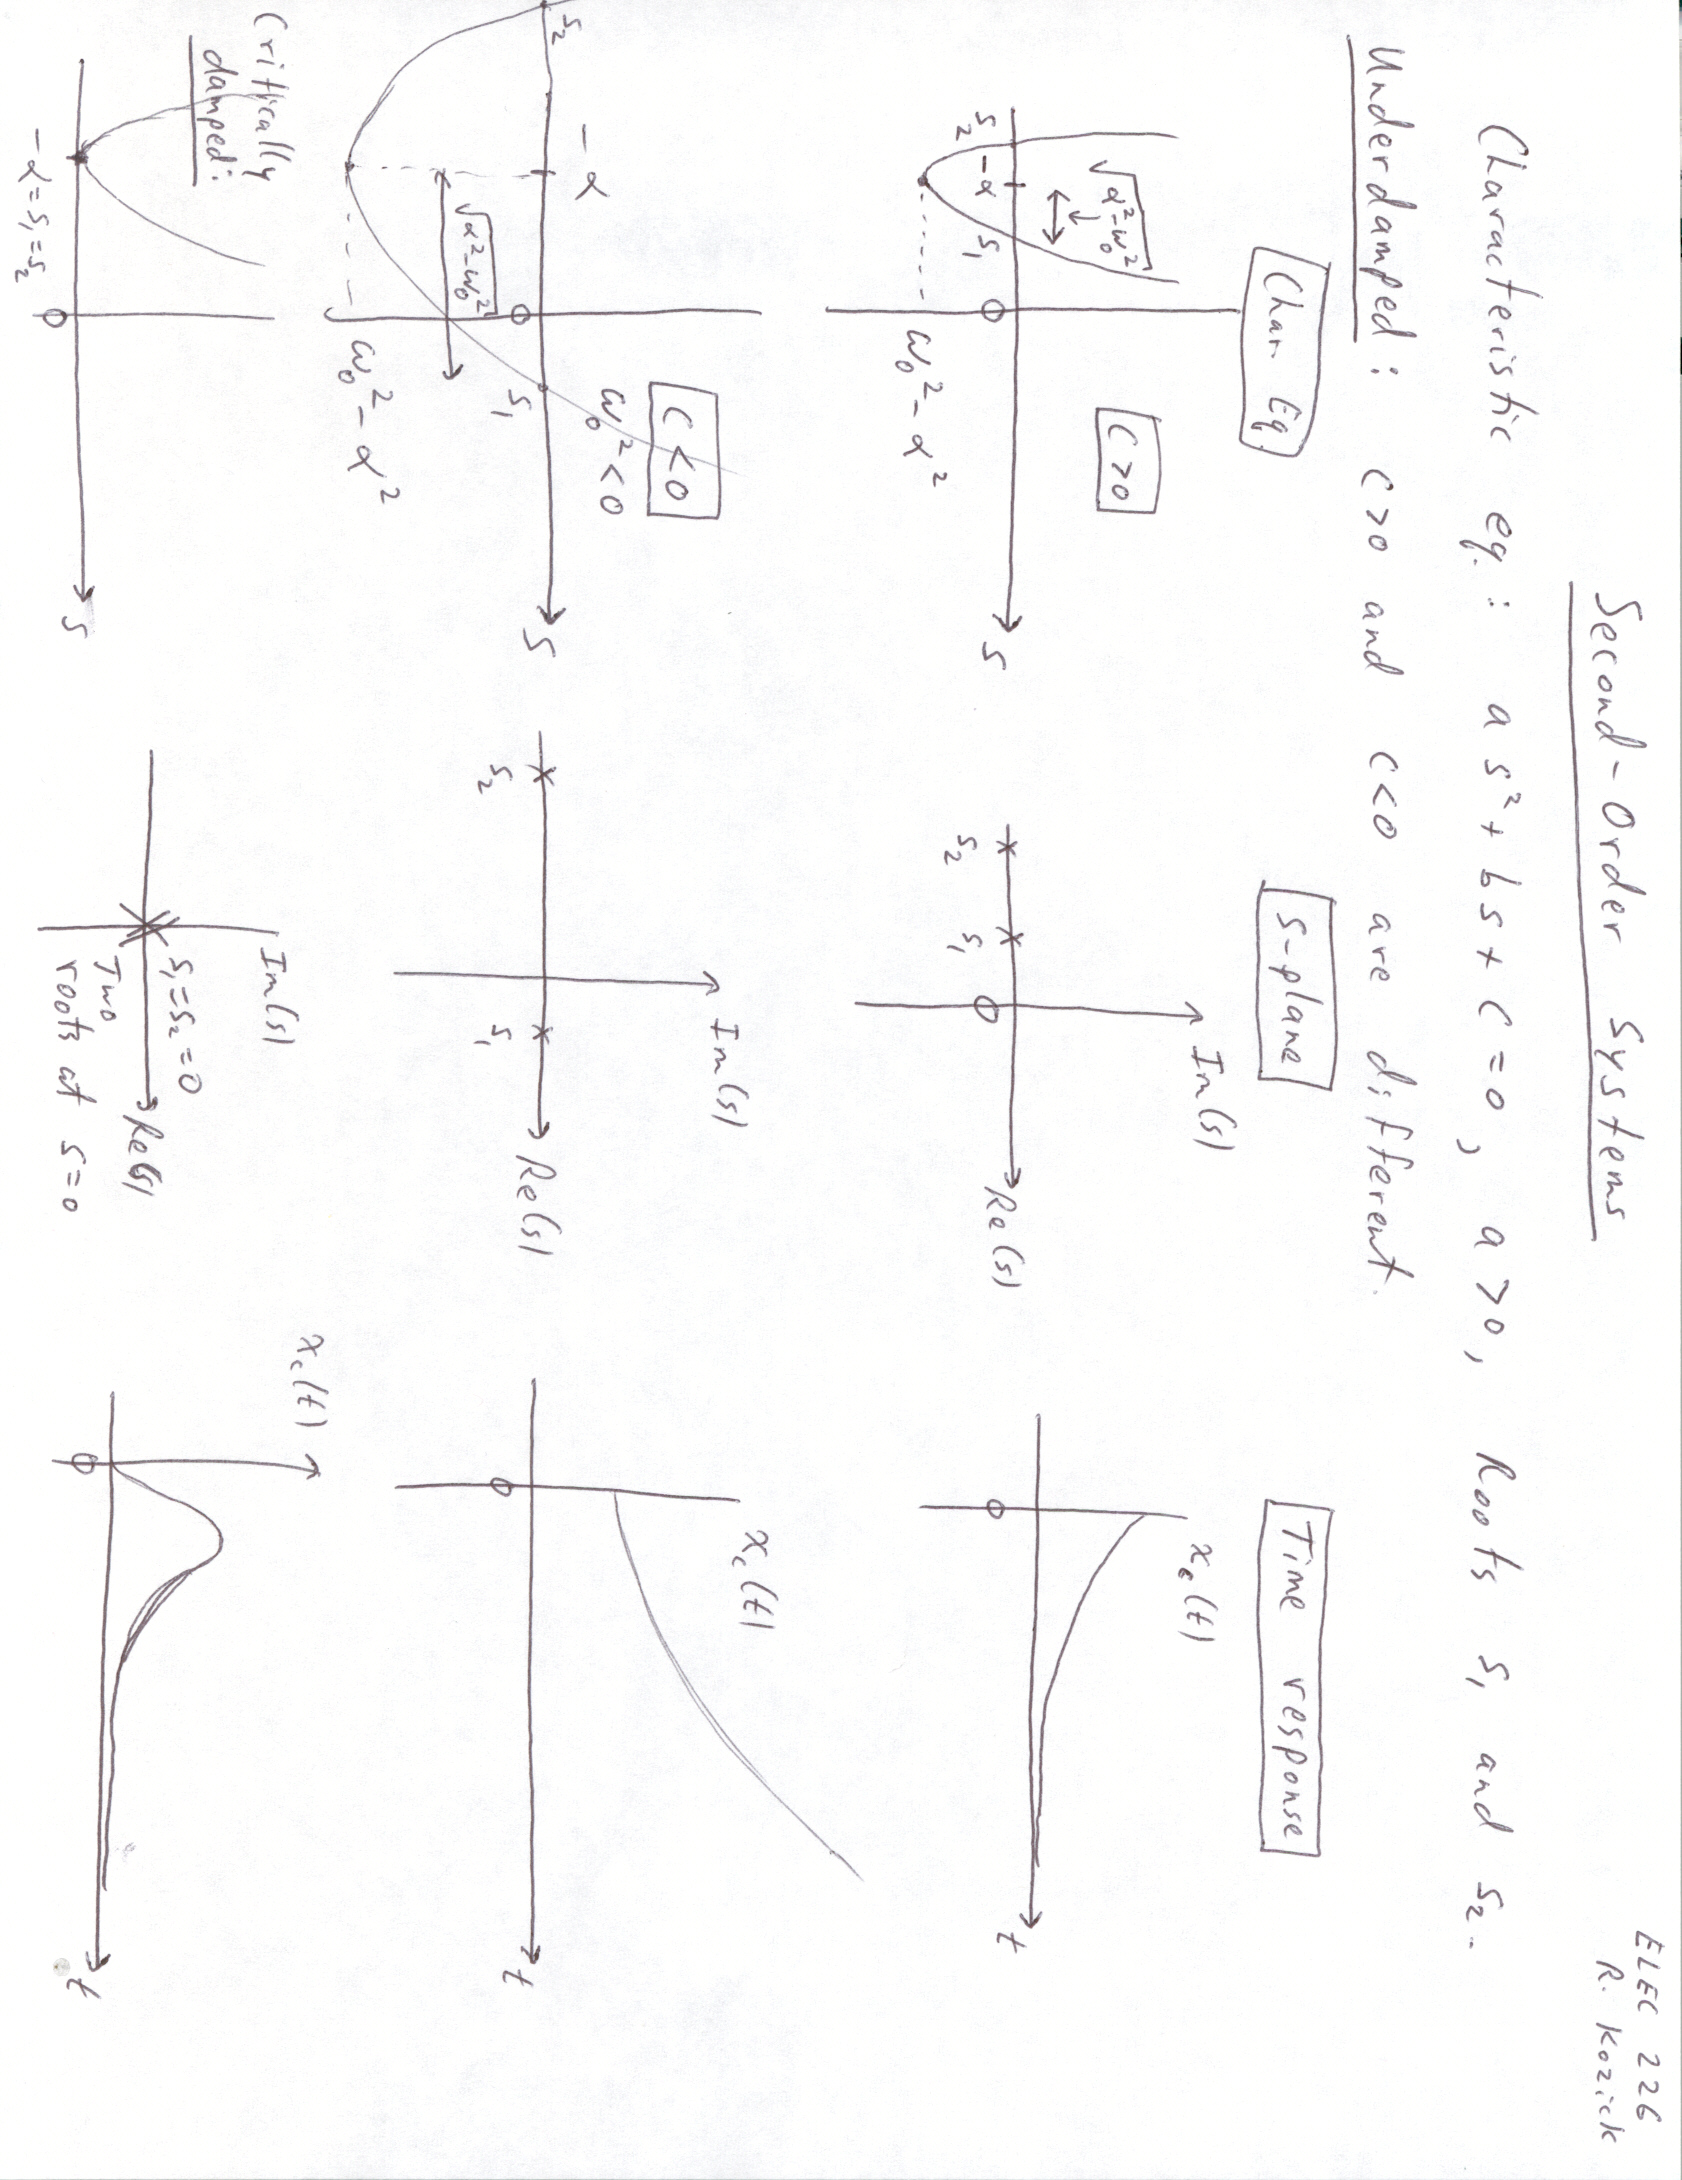 ELEC 226
R. Kozick
Second-Order Systems
Characteristic eq.: as² + bs + c = 0, a > 0, Roots s₁ and s₂.
Underdamped: c>0 and c<0 are different.
Char. Eq.
s-plane
Time response
c>0
√α²-ω₀²
s₂
-α
s₁
0
ω₀² - α²
s
Im(s)
s₂
s₁
0
Re(s)
x_c(t)
0
t
c<0
ω₀² < 0
s₂
-α
√α²-ω₀²
0
s₁
ω₀² - α²
s
Im(s)
s₂
s₁
Re(s)
x_c(t)
0
t
Critically
damped:
-α = s₁ = s₂
0
s
Im(s)
s₁=s₂=0
Re(s)
Two
roots at s=0
x_c(t)
0
t